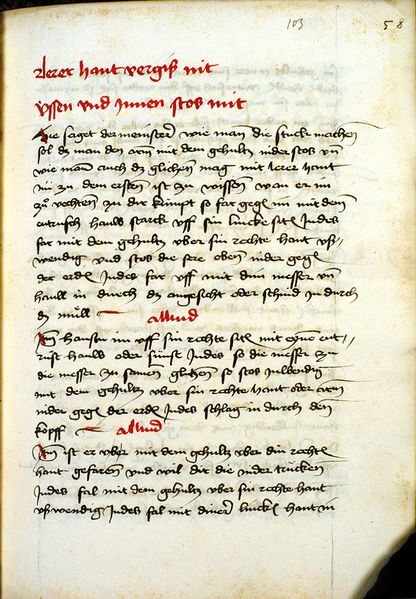 103 58
lerer haut vergiß nit
vssen vnd Innen stos mit
Hie saget der meister wie man die stuck machen
sol dz man den arm mit dem gehultz nider stos vn
wie man auch dz glichen mag mit lerer haut
nu zu dem ersten ist zu wissen wan er im
zu vechten zu dir kumpt so far gegen im mit dem
entrusch hauw starck vff sin lincke siten Indes
far mit dem gehultz vber sin rechte hant vß
wendig vnd stos die sere oben nider gegen
der erden Indes far vff mit dim messer vn
hauw in durch dz angesicht oder schnid In durch
dz mull
Alliud
Item haustu im vff sin rechte siten mit eyme ent
rust hauw oder sunst Indes so die messer zu
die messer zu samen glitzen so stos Inwendig
mit dem gehultz vber sin rechte hant oder arm
nider gegen der erden Indes schlag in durch den
kopff
Alliud
Item ist er vber mit dem gehultz vber din rechten
hant gefaren vnd wil dir die nider trucken
Indes fal mit dem gehultz vber sin rechte hant
vßwendig Indes fal mit diner lincken hant in